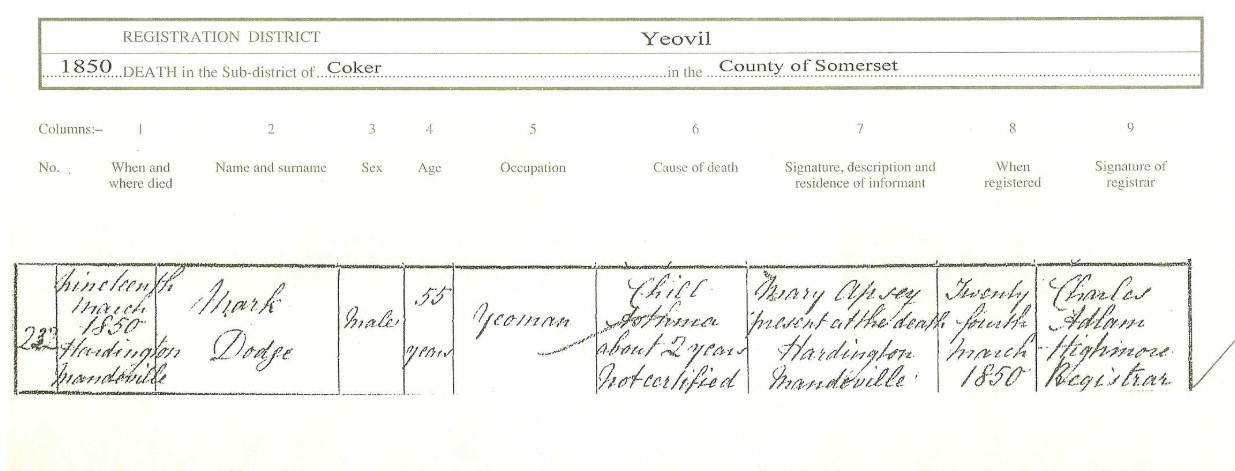 REGISTRATION DISTRICT Yeovil
1850 DEATH in the Sub-district of Coker in the County of Somerset
Columns:– 1 2 3 4 5 6 7 8 9
No. When and where died Name and surname Sex Age Occupation Cause of death Signature, description and residence of informant When registered Signature of registrar
222
Nineteenth
March
1850
Hardington
Mandeville
Mark
Dodge
Male
55
years
Yeoman
Chill
Asthma
about 2 years
Not certified
Mary Apsey
present at the death
Hardington
Mandeville
Twenty
fourth
March
1850
Charles
Adlam
Highmore
Registrar